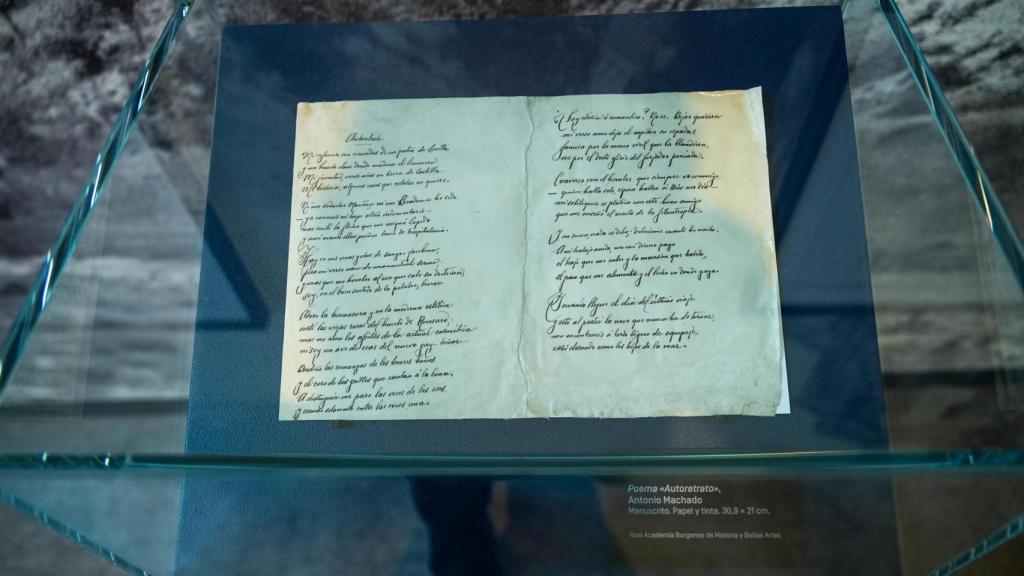 Autoretrato.
Mi infancia son recuerdos de un patio de Sevilla
y un huerto claro donde madura el limonero;
Mi juventud, veinte años en tierra de Castilla
Mi historia, algunos casos que relatar no quiero.
Ni un seductor Mañara ni un Bradomin he sido,
— ya conoceis mi torpe aliño indumentario —
mas recibí la flecha que me asignó Cupido
y amé cuanto ellas pueden tener de hospitalario.
Hay en mis venas gotas de sangre jacobina;
pero mi verso brota de manantial sereno
y mas que un hombre al uso que sabe su doctrina
soy, en el buen sentido de la palabra, bueno.
Adoro la hermosura y en la moderna estética
corté las viejas rosas del huerto de Ronsard;
mas no amo los afeites de la actual cosmética
ni soy un ave de esas del nuevo gay-trinar.
Desdeño las romanzas de los tenores huecos
y el coro de los grillos que cantan á la luna.
A distinguir me paro las voces de los ecos,
y escucho solamente entre las voces una.
¿Soy clásico ó romántico? No sé. Dejar quisiera
mi verso como deja el capitan su espada
famosa por la mano viril que la blandiera,
no por el docto oficio del forjador preciada.
Converso con el hombre que siempre va conmigo
— quien habla solo, espera hablar á Dios un dia —
mi soliloquio es plática con este buen amigo
que me enseñó el secreto de la filantropía.
Y en suma, nada os debo; debeisme cuanto he escrito.
A mi trabajo acudo, con mi dinero pago
el traje que me cubre y la mansion que habito,
el pan que me alimenta y el lecho en donde yago.
Y cuando llegue el dia del último viaje
y esté al partir la nave que nunca ha de tornar,
me encontrareis á bordo ligero de equipaje,
casi desnudo como los hijos de la mar.
Poema «Autoretrato»,
Antonio Machado
Manuscrito. Papel y tinta. 30,9 × 21 cm.
Real Academia Burgense de Historia y Bellas Artes